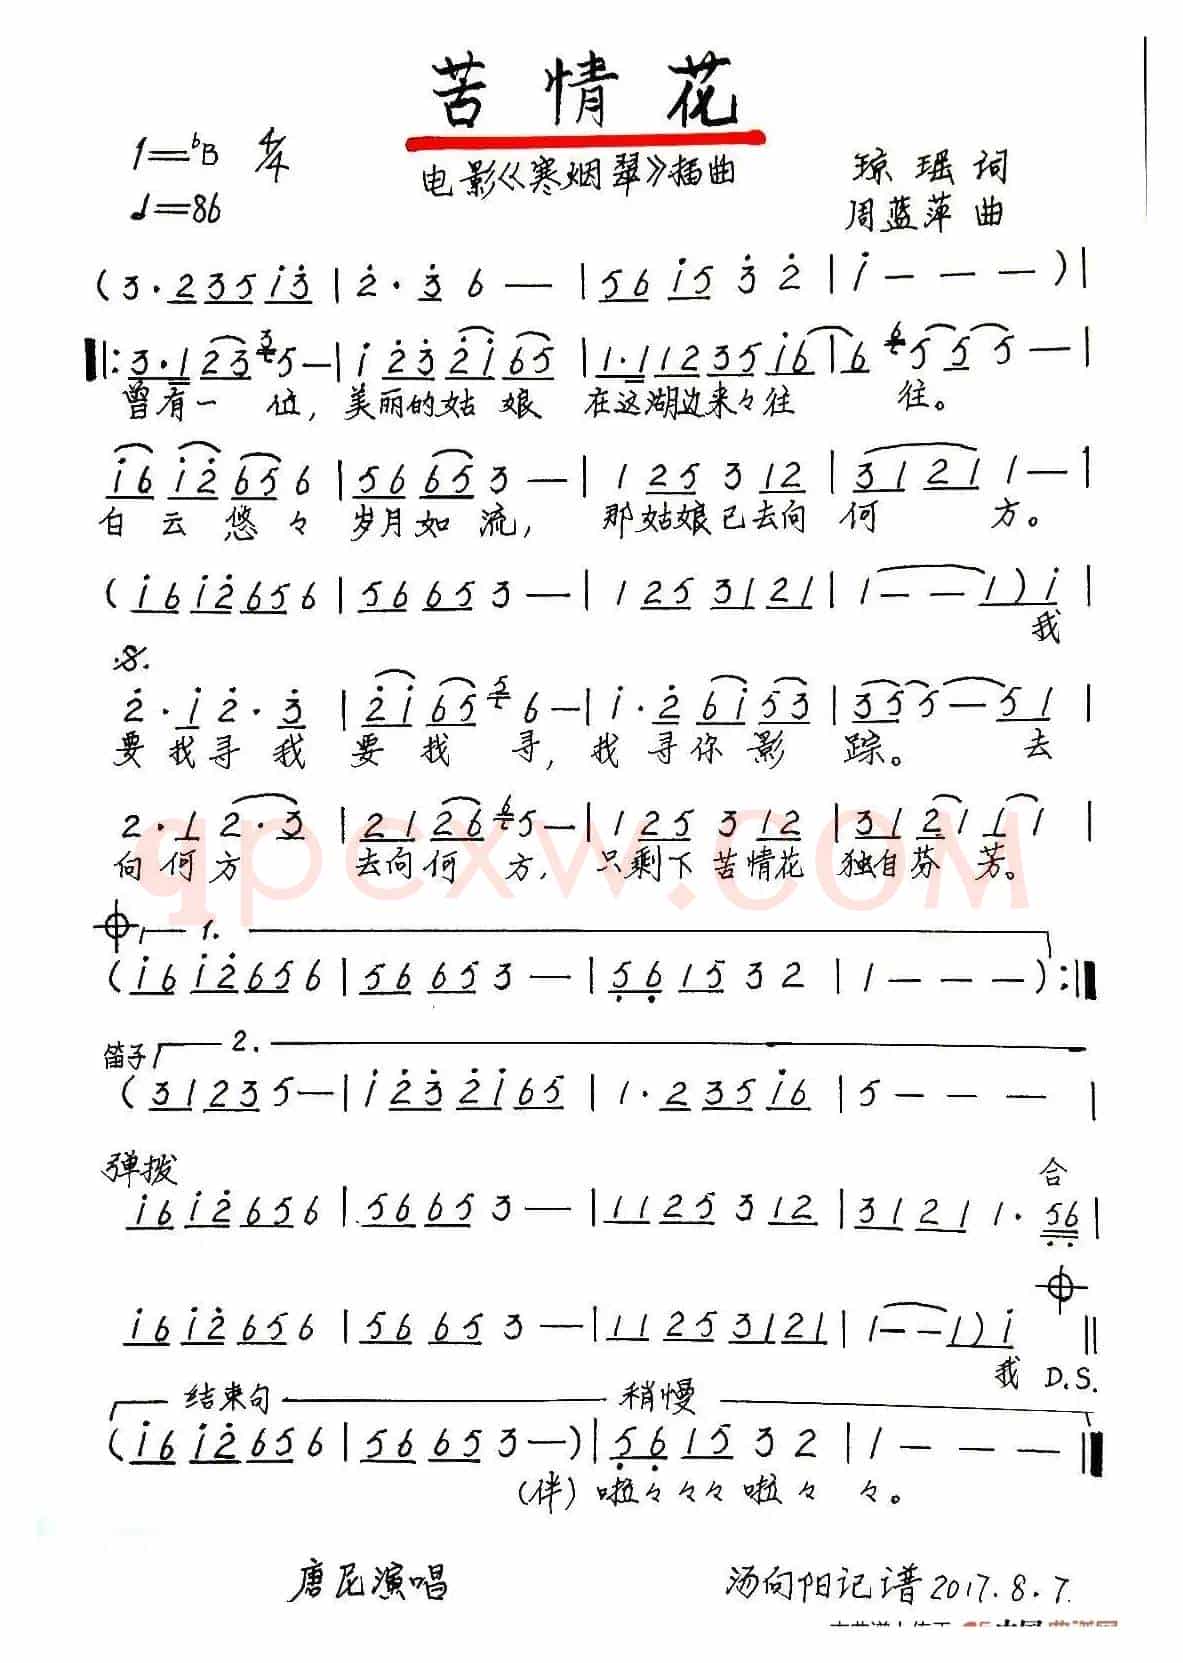 苦情花
1=bB 4/4
电影《寒烟翠》插曲
琼瑶词
♩=86
周蓝萍曲
(3·235i̇3̇|2̇·3̇6—|56i̇53̇2̇|i̇———)|
‖:3·1235—|i̇2̇3̇2̇i̇65|1·11235i̇6i̇6555—|
曾有一位,美丽的姑娘 在这湖边来々往往。
i̇6i̇2̇656|56653—|125312|31211—|
白云悠々岁月如流,那姑娘已去向何方。
(i̇6i̇2̇656|56653—|1253121|1——1)i̇|
我
2̇·i̇2̇·3̇|2̇i̇656—|i̇·2̇6i̇53|355—51|
要找寻我要找寻,我寻你影踪。去
2·12·3|21265—|125312|3121111|
向何方 去向何方,只剩下苦情花独自芬芳。
1.
(i̇6i̇2̇656|56653—|5̣6̣1532|1———):‖
笛子 2.
(31235—|i̇2̇3̇2̇i̇65|1·235i̇6|5———|
弹拨 合
i̇6i̇2̇656|56653—|1125312|31211·5̣6̣|
i̇6i̇2̇656|56653—|11253121|1——1)i̇‖
我 D.S.
结束句 稍慢
(i̇6i̇2̇656|56653—)|5̣6̣1532|1———‖
(伴)啦々々々啦々々。
唐尼演唱
汤向阳记谱2017.8.7.
qpcxw.COM